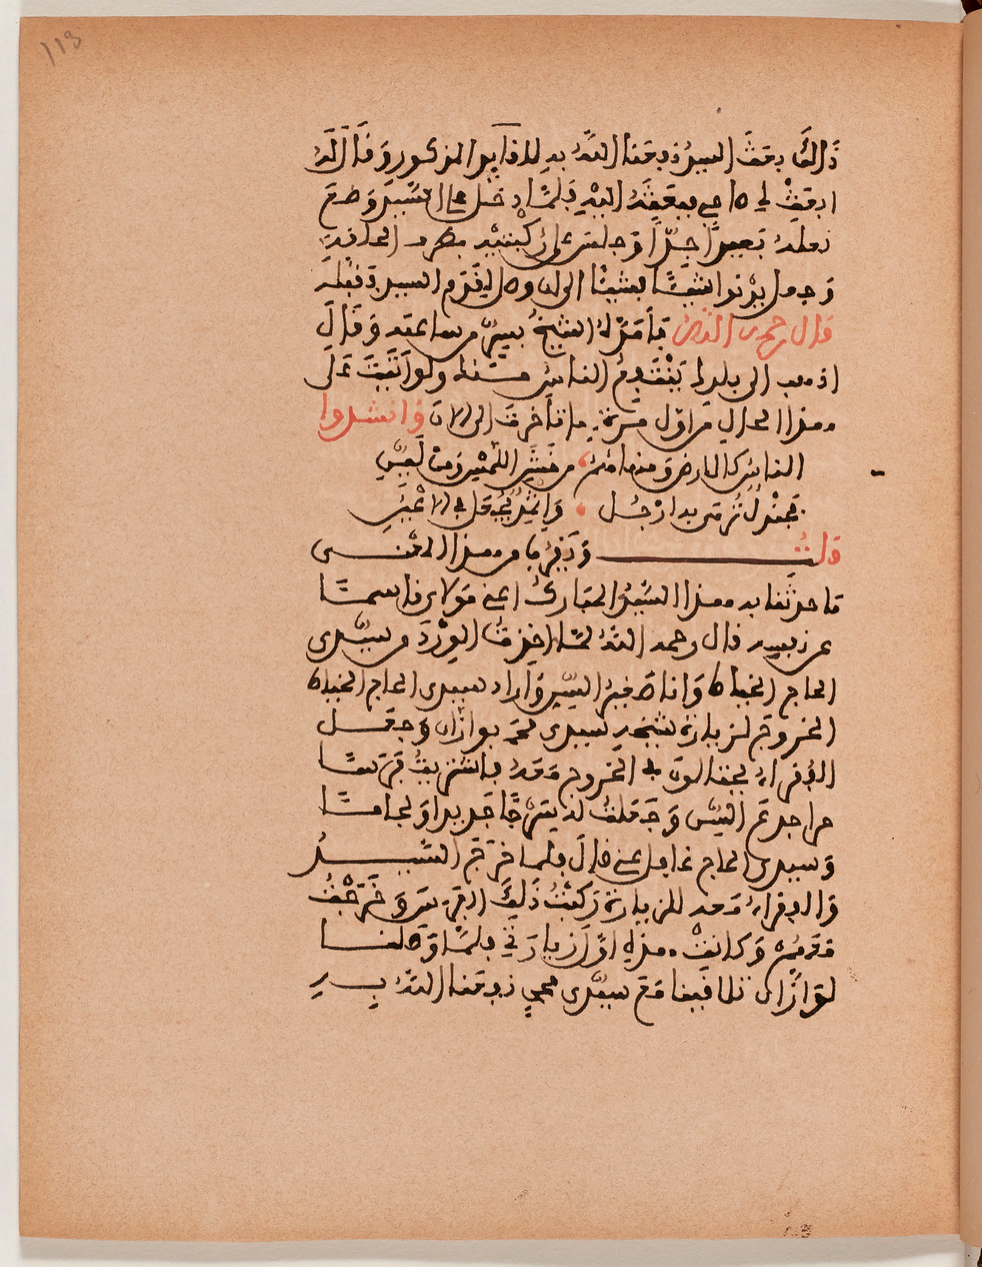 113
ذَالك بعث السيد نفعنا الله به للقايد المذكور وَقَالَ لَهُ
ابعث لي صاحبي فبعثه اليه فلمّا دخل على الشيخ وضع
نعله بعيدا جدّا وجلس على ركبتيه بطرف الحلقة
وجعل يدنوا شيئا فشيئا الى ان وصل ليقدم السيد فقبله
قال رحمه الله فأمره الشيخ من ساعته وقال
اذهب الى بلدك الناس ولو اتيت على
هذا الحال من اوّل مرّة ما تأخرت الى الان وانشدوا
الناس كالارض ومنها هم من خشن اللمس ومن ليّن
فجندل تدمى به ارجل واثمد يجعل في الاعين
قلت وَيَقرب من هذا المعنى
ما حدثنا به هذا السيد المبارك اعني مولاي قاسما
عن نفسه قال رحمه الله لما اخذت الورد من سيدي
الحاج الخياط وانا صغير السن واراد سيدي الحاج الخياط
الخروج لزيارة شيخه سيدي محمد بوازان وجعل
الفقراء يحتالون في الخروج معه فاشتريت فرسا
من احد وجعلت له سرجا جديدا ولجاما
وسيدي الحاج غافل عني قال فلما خرج السيد
والفقراء معه للزيارة ركبت ذلك الفرس وخرجت
معهم وكانت هذه اوّل زيارتي فلمّا وصلنا
لوازان تلاقينا مع سيدي نفعنا الله به